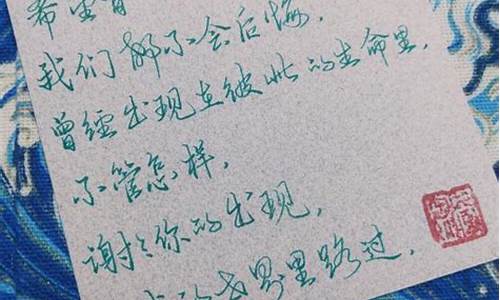 希望
我们都不会后悔，
曾经出现在彼此的生命里，
不管怎样，
谢谢你的出现，
的世界里路过，